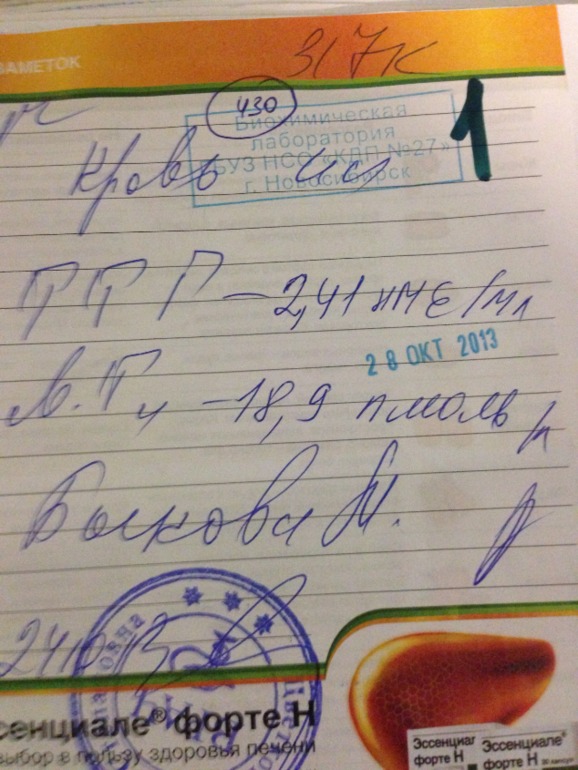 ЗАМЕТОК
317к
430
Биохимическая
лаборатория
ГБУЗ НСО «КДП №27»
г. Новосибирск
1
Кровь на
ТТГ – 2,41 мкМЕ/мл
28 ОКТ 2013
св. Т4 – 18,9 пмоль/л
Быкова И.
24.10.13
ссенциале® форте Н
выбор в пользу здоровья печени
Эссенциале®
форте Н
Эссенциале®
форте Н
30 капсул